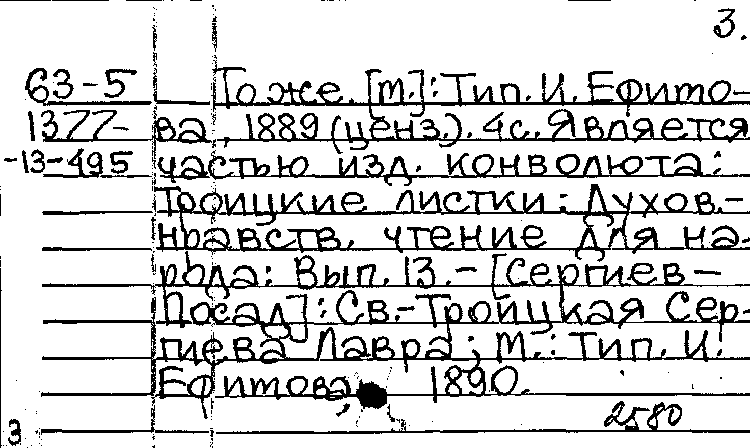 3.
63-5 То же. [М.]: Тип. И. Ефито-
1377- ва, 1889 (ценз.). 4с. Является
-13-495 частью изд. конволюта:
Троицкие листки: Духов.-
нравств. чтение для на-
рода: Вып. 13. - [Сергиев-
Посад]: Св.-Троицкая Сер-
гиева Лавра; М.: Тип. И.
Ефитова, 1890.
2580
3